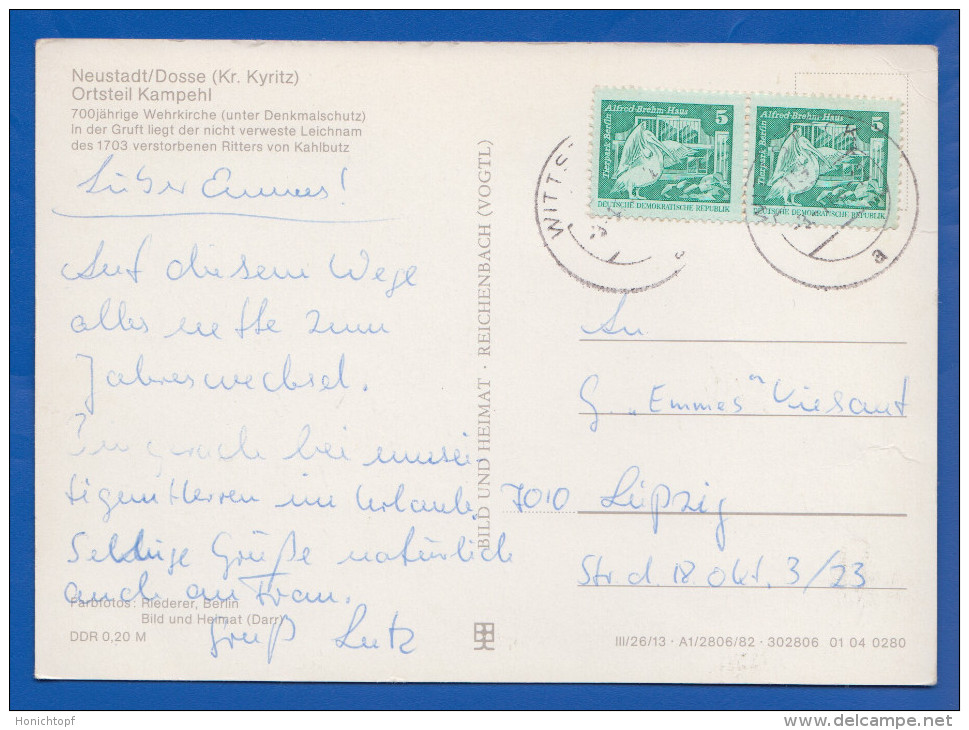 Neustadt/Dosse (Kr. Kyritz)
Ortsteil Kampehl
700jährige Wehrkirche (unter Denkmalschutz)
In der Gruft liegt der nicht verweste Leichnam
des 1703 verstorbenen Ritters von Kahlbutz
Lieber Emmes!
Auf diesem Wege
alles nette zum
Jahreswechsel.
bei
Herren im Urlaub.
Grüße natürlich
auch an Frau.
Gruß Lutz
Farbfotos: Riederer, Berlin
Bild und Heimat (Darr)
DDR 0,20 M
BILD UND HEIMAT · REICHENBACH (VOGTL)
Alfred-Brehm-Haus 5
Tierpark Berlin
DEUTSCHE DEMOKRATISCHE REPUBLIK
Alfred-Brehm-Haus 5
Tierpark Berlin
DEUTSCHE DEMOKRATISCHE REPUBLIK
WITTS
An
G. „Emmes"
7010 Leipzig
Str. d. 18. Okt. 3/23
III/26/13 · A1/2806/82 · 302806 01 04 0280
Honichtopf
www.delcampe.net